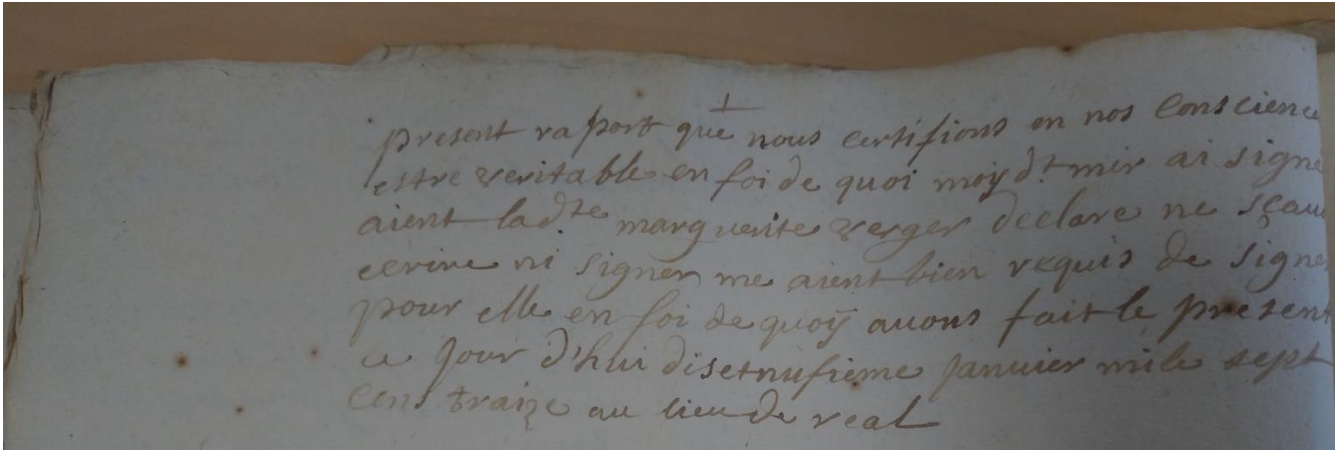 present raport que nous certifions en nos conscience
estre veritable en foi de quoi moÿ d.t mir ai signe
aient lad.te marguerite verger declare ne sçau
ecrire ni signer me aient bien requis de signer
pour elle en foi de quoÿ avons fait le present
ce jour d'hui disetnufieme janvier mile sept
cens traize au lieu de real